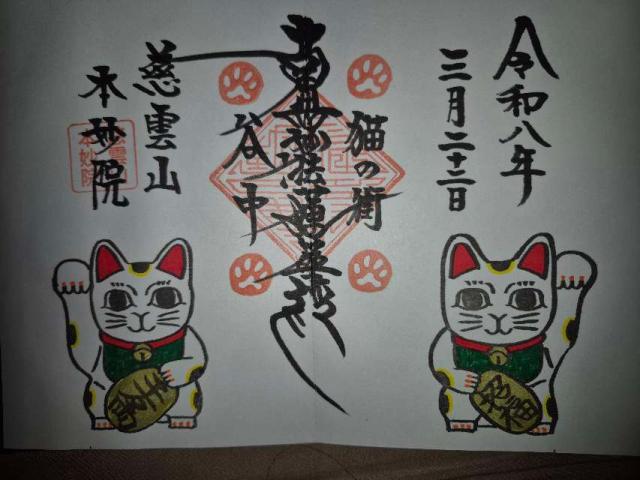 令和八年
三月二十二日
猫の街
南無妙法蓮華経
谷中
慈雲山
本妙院
招福